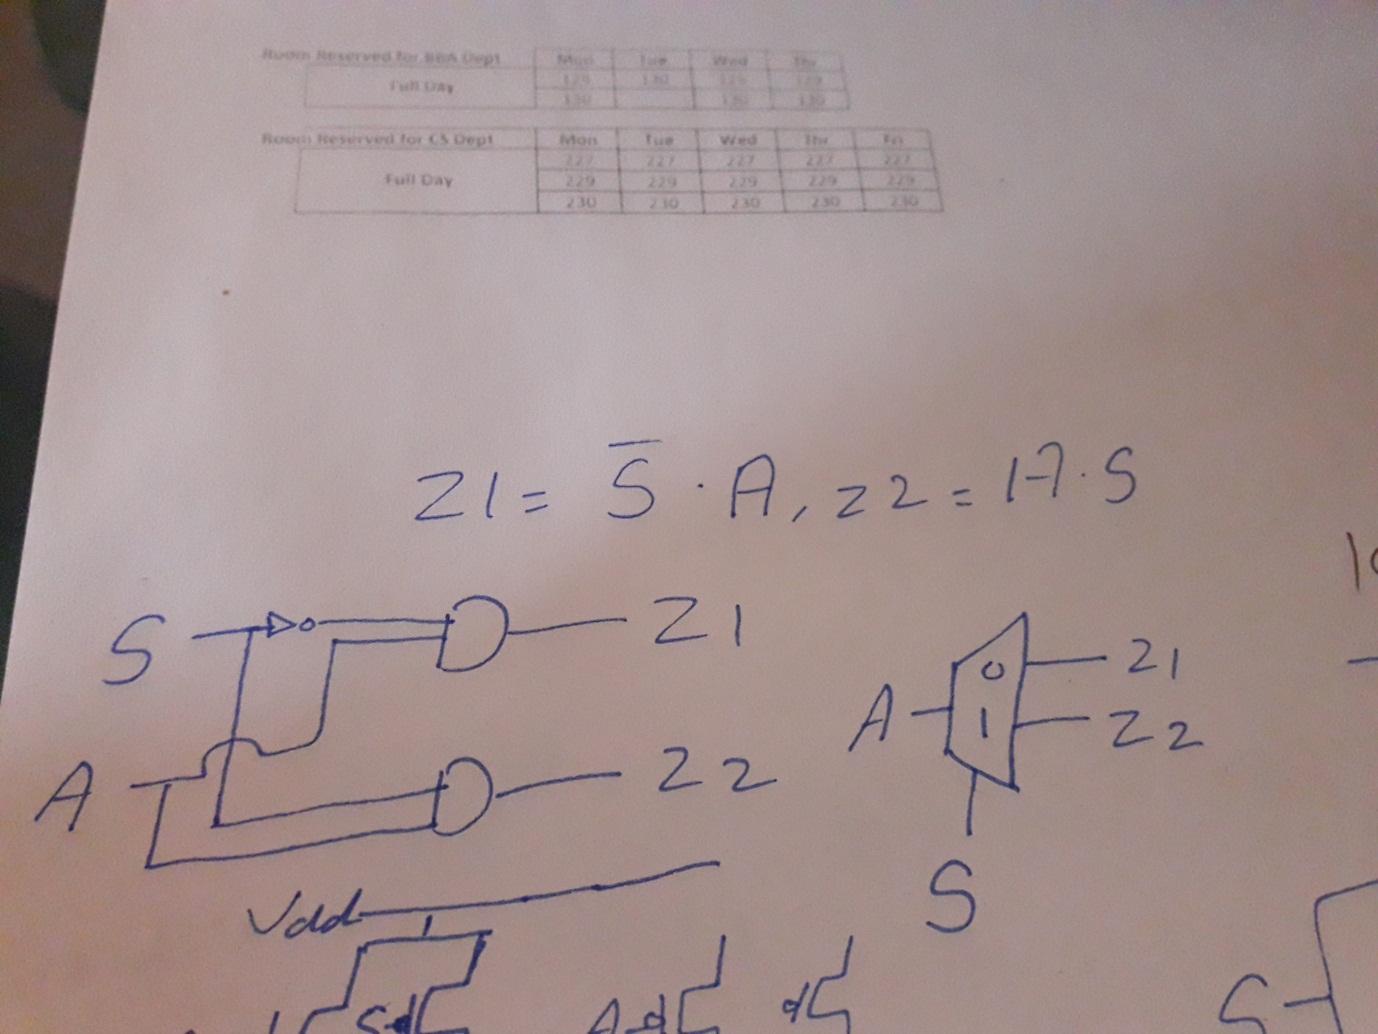 Room Reserved for BBA Dept Mon Tue Wed Thr
Full Day 129 130 129 129
130 130 130
Room Reserved for CS Dept Mon Tue Wed Thr Fri
227 227 227 227 227
Full Day 229 229 229 229 229
230 230 230 230 230
Z1 = S̅ · A, Z2 = A · S
S Z1
A Z2
A 0 1 Z1
Z2
S
Vdd
S A
S